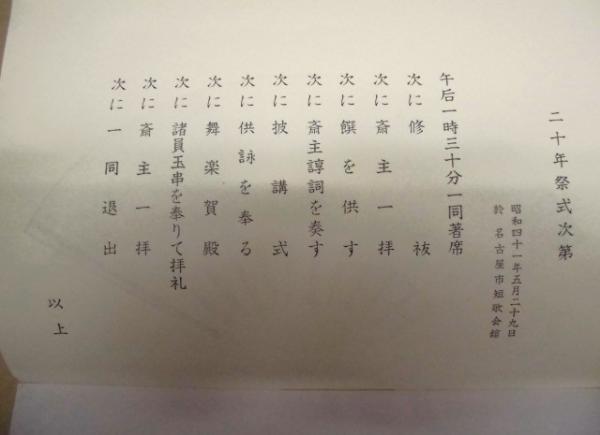 二十年祭式次第
昭和四十一年五月二十九日
於 名古屋市短歌会館
午后一時三十分一同著席
次に修祓
次に斎主一拝
次に饌を供す
次に斎主諄詞を奏す
次に披講式
次に供詠を奉る
次に舞楽賀殿
次に諸員玉串を奉りて拝礼
次に斎主一拝
次に一同退出
以上